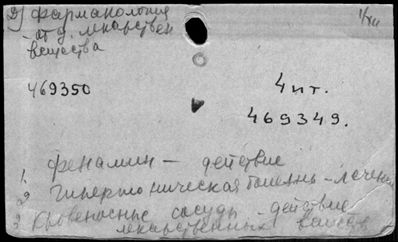 2) фармакология
- отд. лекарствен
вещества
1/XII
469350
4 пт.
469349.
1. фенамин - действие
2 Гипертоническая болезнь - лечение
3 Кровеносные сосуды - действие
лекарственных веществ